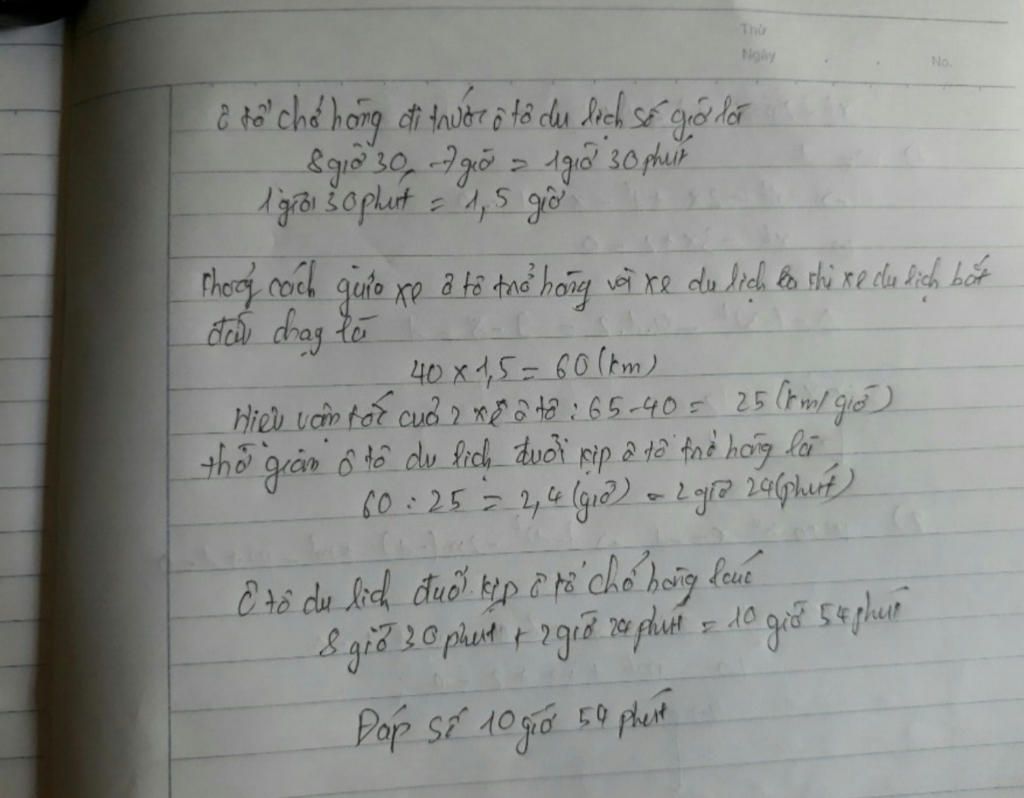 Thứ
Ngày . . No.
ô tô chở hàng đi trước ô tô du lịch số giờ là
8 giờ 30, - 7 giờ = 1 giờ 30 phút
1 giờ 30 phút = 1,5 giờ
Khoảg cách giữa xe ô tô trở hàng và xe du lịch khi xe du lịch bắt
đầu chạy là
40 x 1,5 = 60 (km)
Hiệu vận tốc của 2 xe ô tô : 65 - 40 = 25 (km/giờ)
thời gian ô tô du lịch đuổi kịp ô tô trở hàng là
60 : 25 = 2,4 (giờ) = 2 giờ 24 (phút)
Ô tô du lịch đuổi kịp ô tô chở hàng lúc
8 giờ 30 phút + 2 giờ 24 phút = 10 giờ 54 phút
Đáp số 10 giờ 54 phút